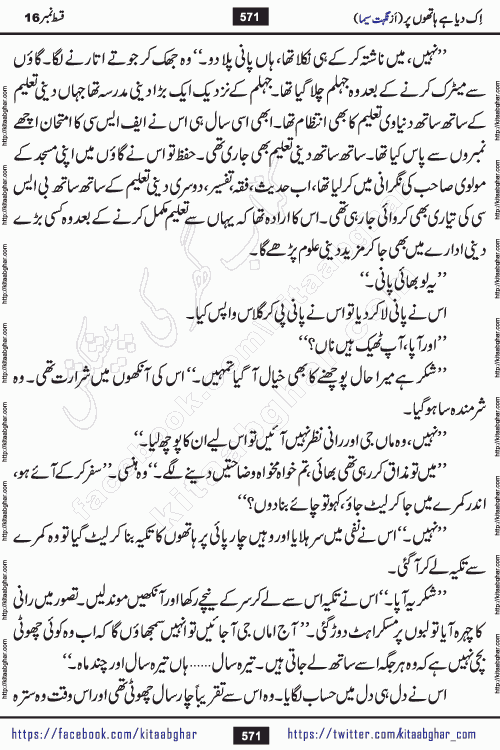 اِک دیا ہے ہاتھوں پر (از نگہت سیما) 571 قسط نمبر 16
”نہیں، میں ناشتہ کر کے ہی نکلا تھا، ہاں پانی پلا دو۔“ وہ جھک کر جوتے اتارنے لگا۔ گاؤں
سے میٹرک کرنے کے بعد وہ جہلم چلا گیا تھا۔ جہلم کے نزدیک ایک بڑا دینی مدرسہ تھا جہاں دینی تعلیم
کے ساتھ ساتھ دنیاوی تعلیم کا بھی انتظام تھا۔ ابھی اسی سال ہی اس نے ایف ایس سی کا امتحان اچھے
نمبروں سے پاس کیا تھا۔ ساتھ ساتھ دینی تعلیم بھی جاری تھی۔ حفظ تو اس نے گاؤں میں اپنی مسجد کے
مولوی صاحب کی نگرانی میں کر لیا تھا، اب حدیث، فقہ، تفسیر، دوسری دینی تعلیم کے ساتھ ساتھ بی ایس
سی کی تیاری بھی کروائی جا رہی تھی۔ اس کا ارادہ تھا کہ یہاں سے تعلیم مکمل کرنے کے بعد وہ کسی بڑے
دینی ادارے میں بھی جا کر مزید دینی علوم پڑھے گا۔
”یہ لو بھائی پانی۔“
اس نے پانی لا کر دیا تو اس نے پانی پی کر گلاس واپس کیا۔
”اور آپا، آپ ٹھیک ہیں ناں؟“
”شکر ہے میرا حال پوچھنے کا بھی خیال آ گیا تمہیں۔“ اس کی آنکھوں میں شرارت تھی۔ وہ
شرمندہ سا ہو گیا۔
”نہیں، وہ ماں جی اور رانی نظر نہیں آئیں تو اس لیے ان کا پوچھ لیا۔“
”میں تو مذاق کر رہی تھی بھائی، تم خواہ مخواہ وضاحتیں دینے لگے۔“ وہ ہنسی۔ ”سفر کر کے آئے ہو،
اندر کمرے میں جا کر لیٹ جاؤ، کہو تو چائے بنا دوں؟“
”نہیں۔“ اس نے نفی میں سر ہلایا اور وہیں چارپائی پر ہاتھوں کا تکیہ بنا کر لیٹ گیا تو وہ کمرے
سے تکیہ لے کر آ گئی۔
”شکریہ آپا۔“ اس نے تکیہ اس سے لے کر سر کے نیچے رکھا اور آنکھیں موند لیں۔ تصور میں رانی
کا چہرہ آیا تو لبوں پر مسکراہٹ دوڑ گئی۔ ”آج اماں جی آ جائیں تو انہیں سمجھاؤں گا کہ اب وہ کوئی چھوٹی
بچی نہیں ہے کہ وہ ہر جگہ اسے ساتھ لے جاتی ہیں۔ تیرہ سال…… ہاں تیرہ سال اور چند ماہ۔“
اس نے دل ہی دل میں حساب لگایا۔ وہ اس سے تقریباً چار سال چھوٹی تھی اور اس وقت وہ سترہ
https://facebook.com/kitaabghar 571 https://twitter.com/kitaabghar